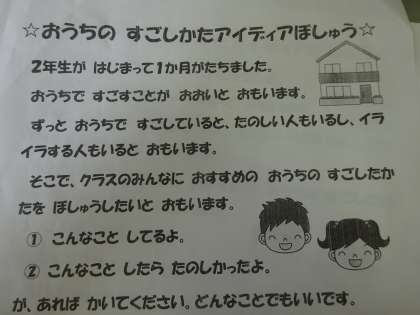 ☆おうちの すごしかたアイディアぼしゅう☆
2年生が はじまって1か月がたちました。
おうちで すごすことが おおいと おもいます。
ずっと おうちで すごしていると、たのしい人もいるし、イラ
イラする人もいると おもいます。
そこで、クラスのみんなに おすすめの おうちの すごしたか
たを ぼしゅうしたいと おもいます。
① こんなこと してるよ。
② こんなこと したら たのしかったよ。
が、あれば かいてください。どんなことでもいいです。